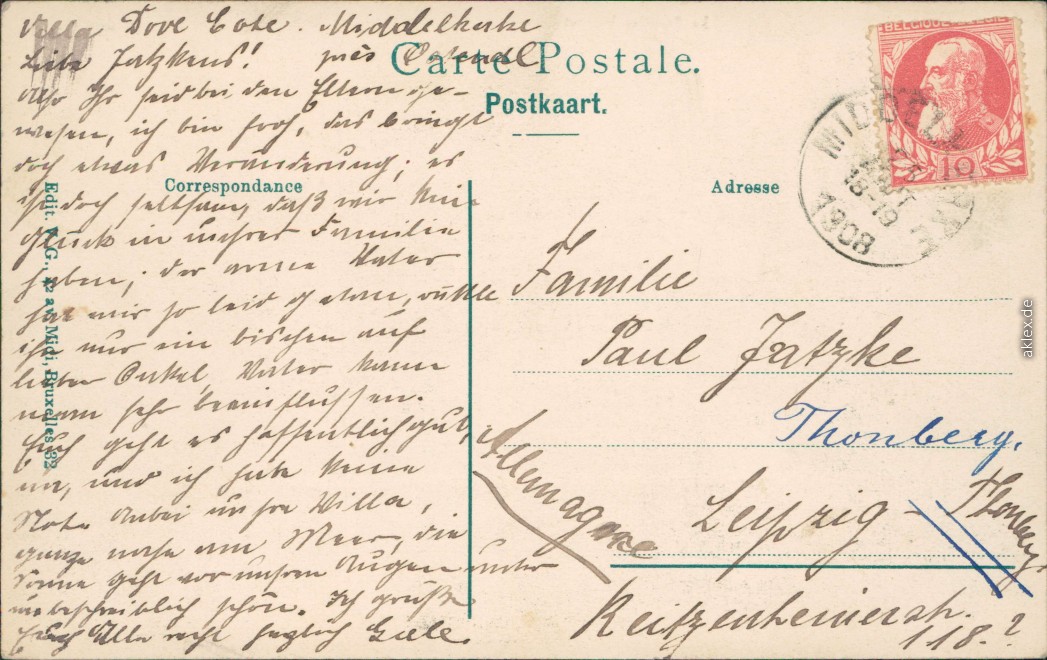 Villa Dove Cote. Middelkerke
Liebe Jatzkens! près Ostende
Carte Postale.
Postkaart.
Also Ihr seid bei den Eltern ge-
wesen, ich bin froh, das bringt
doch etwas Veränderung; es
ist doch seltsam, daß wir kein
Glück in unsrer Familie
haben; der arme Vater
hat mir so leid getan,
ihr nur ein bischen auf
lieben Onkel, Vater kann
man sehr beeinflussen.
Euch geht es hoffentlich gut,
und ich habe keine
Not. Anbei unsre Villa,
ganz nahe am Meer, die
Sonne geht vor unsren Augen unter
unbeschreiblich schön. Ich grüße
Euch Alle recht herzlich
Correspondance
Adresse
Edit. V. G., 42 av. Midi, Bruxelles 32
BELGIQUE BELGIË
10
MIDDELKERKE
AOUT
18-19
1908
Familie
Paul Jatzke
Thonberg.
Leipzig - Thonberg
Reitzenhainerstr.
118.?
Allemagne
aklex.de